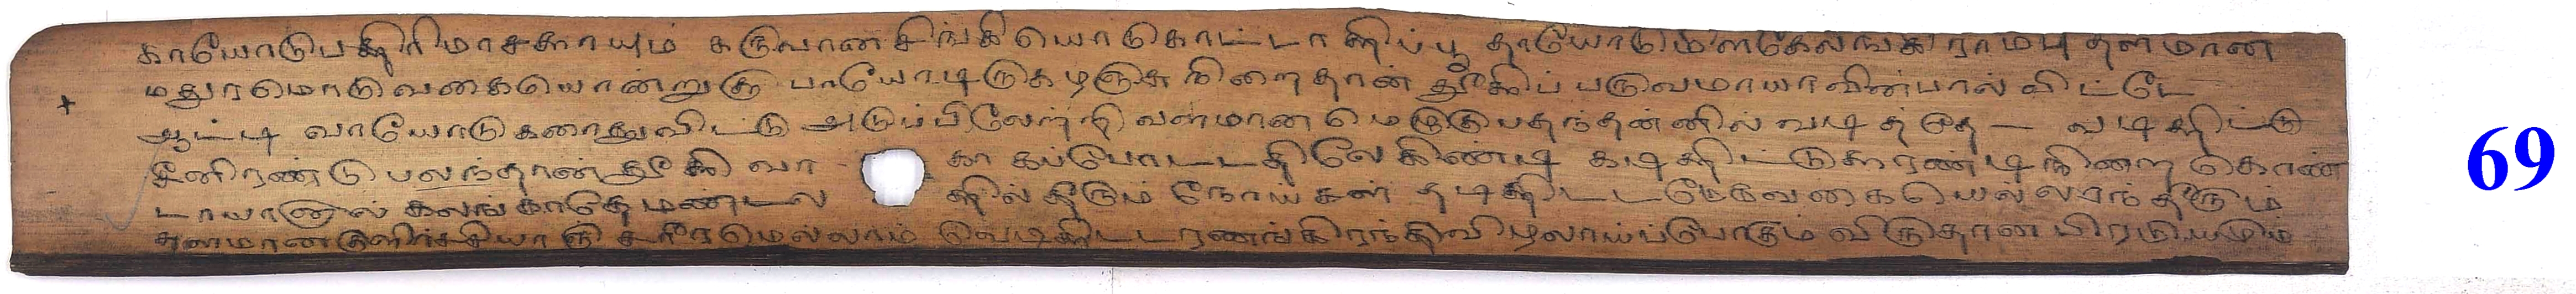 காயோடுபத்திரிமாசகாயும் கருவானசிங்கியொடுகொட்டாத்திப்பூ தாயோடுமிளகிலவங்க்ராமடதளமான
மதுரமொடுவகையொன்றுக்கு பாயோடிருகழஞ்சுநிறைதான் தூக்கிப் பருவமாயாவின்பால் விட்டே
ஆட்டி வாயோடுகரைதுவிட்டு அடுப்பிலேற்றி வளமான மெருகுபதந்தன்னில் வடித்தே — வடித்திட்டு
சீனிரண்டு பலந்தான் தூக்கி வா காகப்போட்டதிலே கிண்டி கடித்திட்டு கரண்டிநிறை கொண்
டாயானால் கலங்காதே மண்டல த்தில்தீரும் நோய்கள் தடித்திட்டமேகவகையெல்லாந்தீரும்
தளமானகுளிர்ச்சியாகு சரீரமெல்லாம் வெடித்திட்டரணங்கிரந்திவிழலாய்ப்போகும் விருதான பிரமியமும்
69